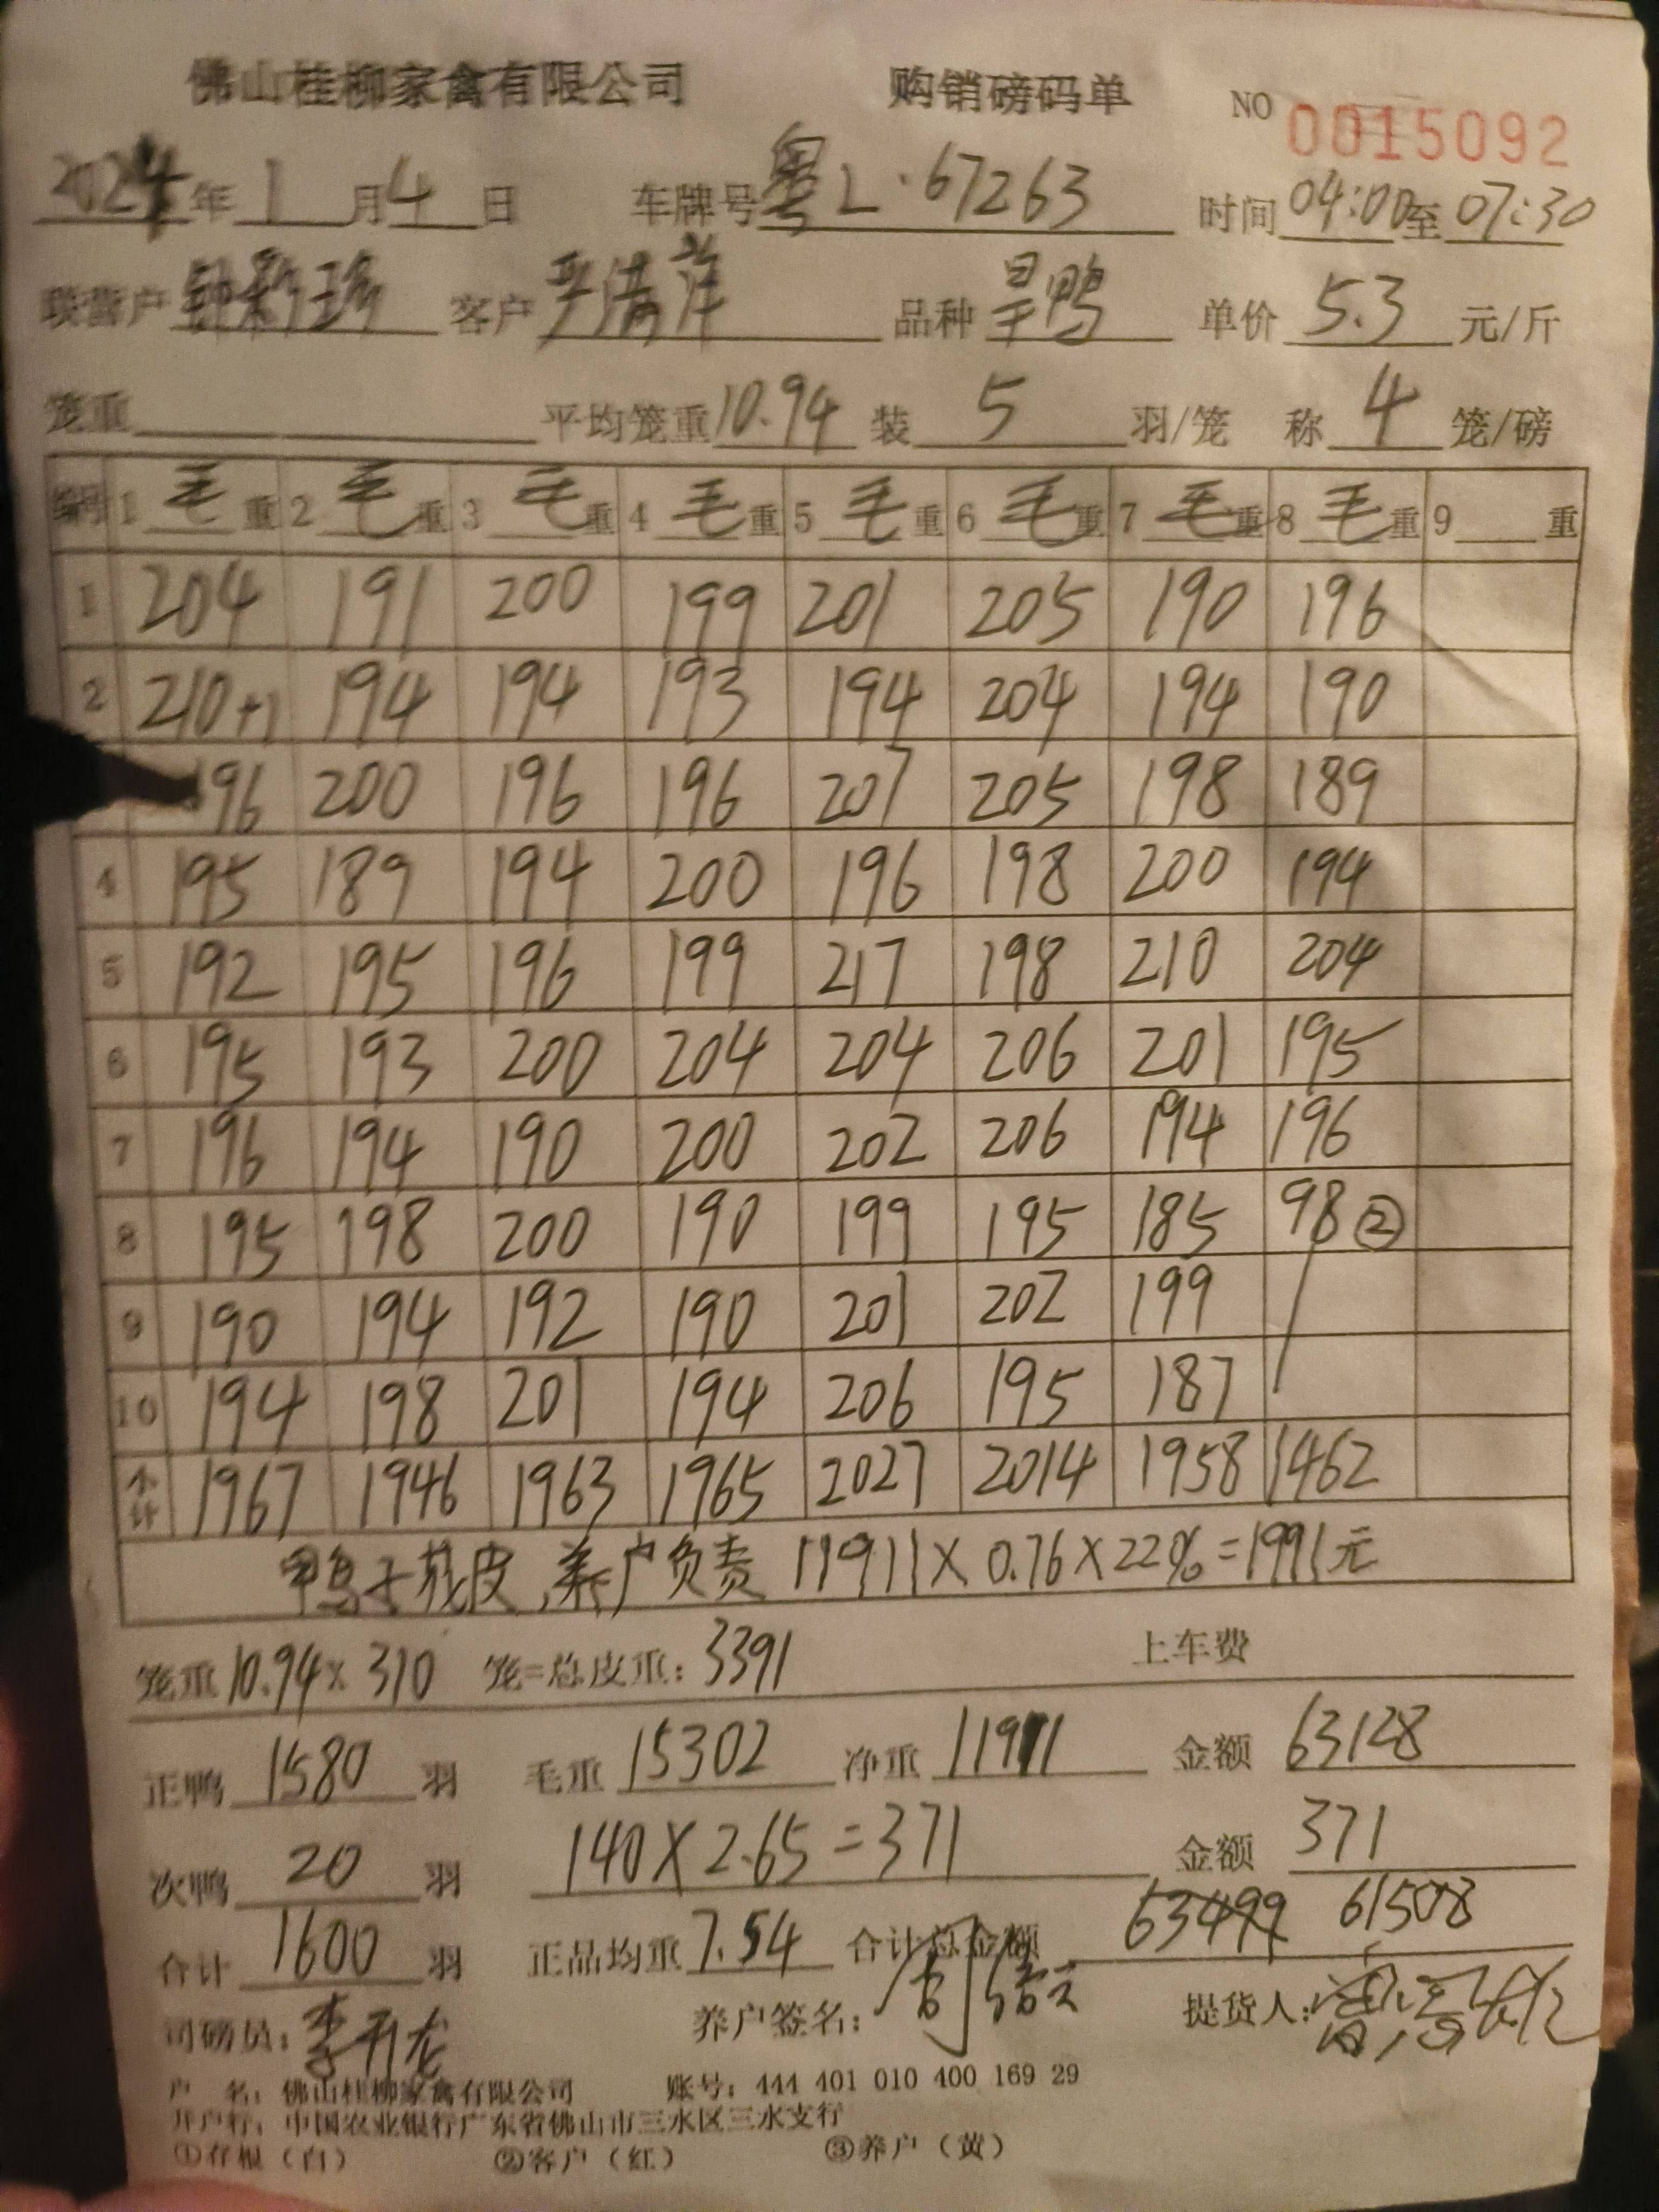 佛山桂柳家禽有限公司 购销磅码单 NO 0015092
2024年1月4日 车牌号粤L·67263 时间04:00至07:30
联营户 客户 品种旱鸭 单价5.3元/斤
笼重 平均笼重10.94 装5羽/笼 称4笼/磅
编号 1毛重 2毛重 3毛重 4毛重 5毛重 6毛重 7毛重 8毛重 9重
1 204 191 200 199 201 205 190 196
2 210+1 194 194 193 194 204 194 190
196 200 196 196 207 205 198 189
4 195 189 194 200 196 198 200 194
5 192 195 196 199 217 198 210 204
6 195 193 200 204 204 206 201 195
7 196 194 190 200 202 206 194 196
8 195 198 200 190 199 195 185 98②
9 190 194 192 190 201 202 199
10 194 198 201 194 206 195 187
小计 1967 1946 1963 1965 2027 2014 1958 1462
鸭子花皮,养户负责 11911×0.76×22%=1991元
笼重10.94×310 笼=总皮重:3391 上车费
正鸭1580羽 毛重15302 净重11911 金额63128
次鸭20羽 140×2.65=371 金额371
合计1600羽 正品均重7.54 合计总金额 63499 61508
司磅员:李开龙 养户签名: 提货人:
户 名:佛山桂柳家禽有限公司 账号:444 401 010 400 169 29
开户行:中国农业银行广东省佛山市三水区三水支行
①存根(白) ②客户(红) ③养户(黄)